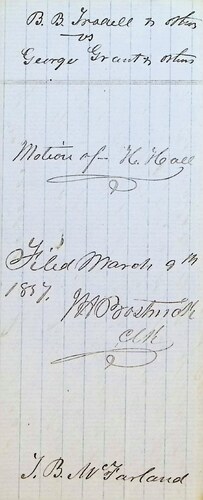 B. B. Iradell & others
vs
George Grant & others
Motion of H. Hall
Filed March 9th
1857.
Clk
J. B. McFarland